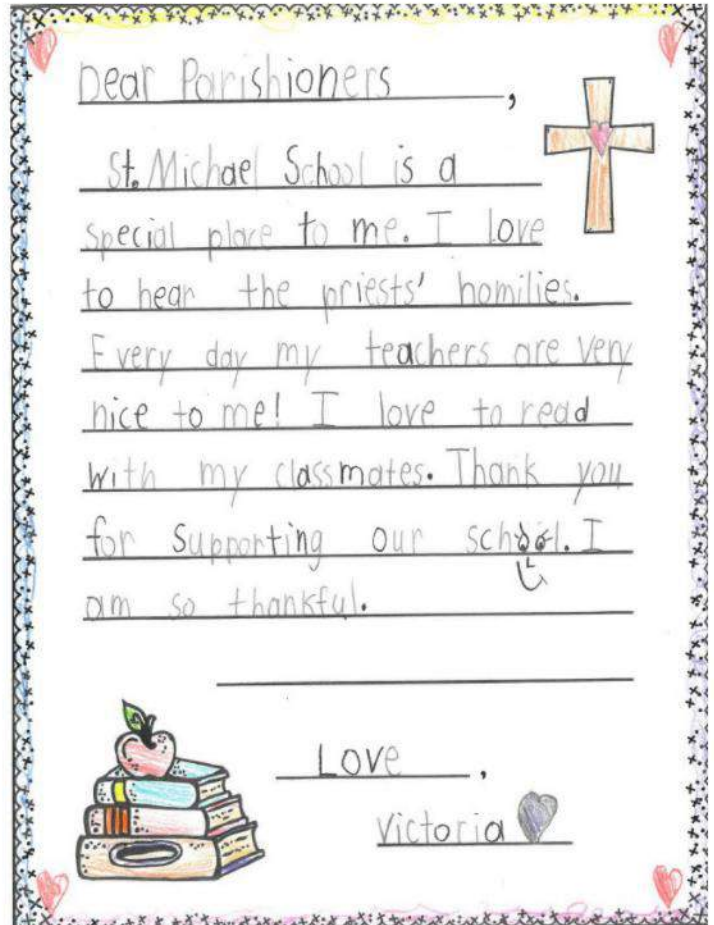 Dear Parishioners,
St. Michael School is a
special place to me. I love
to hear the priests' homilies.
Every day my teachers are very
nice to me! I love to read
with my classmates. Thank you
for supporting our school. I
am so thankful.
Love,
Victoria